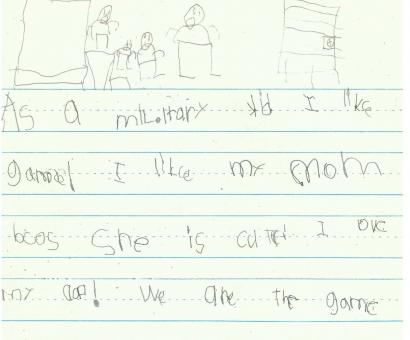 As a military kid I like
game! I like my mom
bcos she is cute! I ove
my dad! We are the game